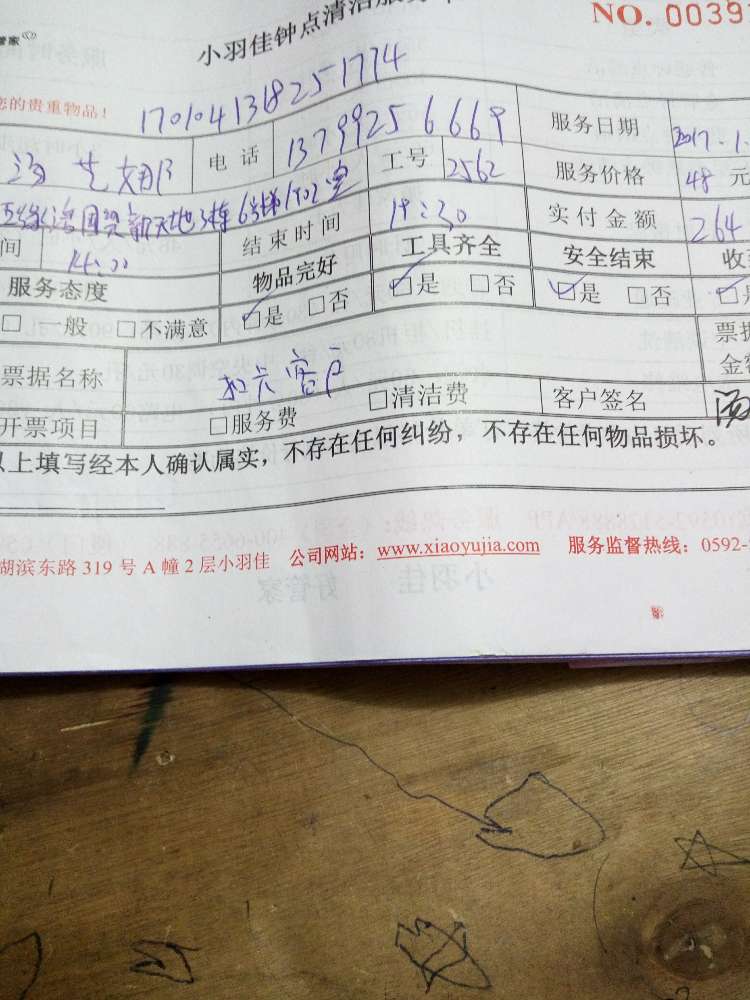 管家
小羽佳钟点清洁服务
NO. 0039
您的贵重物品！
170104138251774
电话 13799256669 服务日期 2017.1.
工号 2562 服务价格 48 元
新天地3栋6号梯1702室 结束时间 19:30 实付金额 264
间 14:00 物品完好 工具齐全 安全结束 收
服务态度 是 否 是 否 是 否
一般 不满意
票据名称 扣卡客户 票据
金
开票项目 服务费 清洁费 客户签名 汤
以上填写经本人确认属实，不存在任何纠纷，不存在任何物品损坏。
湖滨东路 319 号 A 幢 2 层小羽佳 公司网站：www.xiaoyujia.com 服务监督热线：0592-